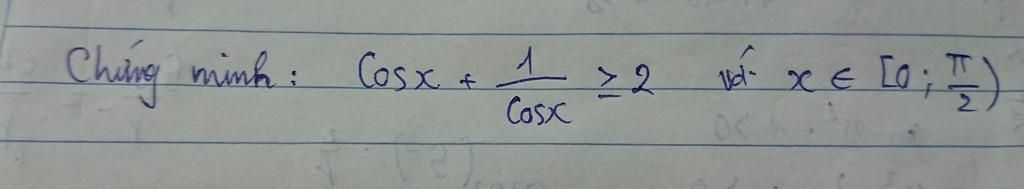 Chứng minh: Cosx + 1/Cosx ≥ 2 với x ∈ [0; π/2)